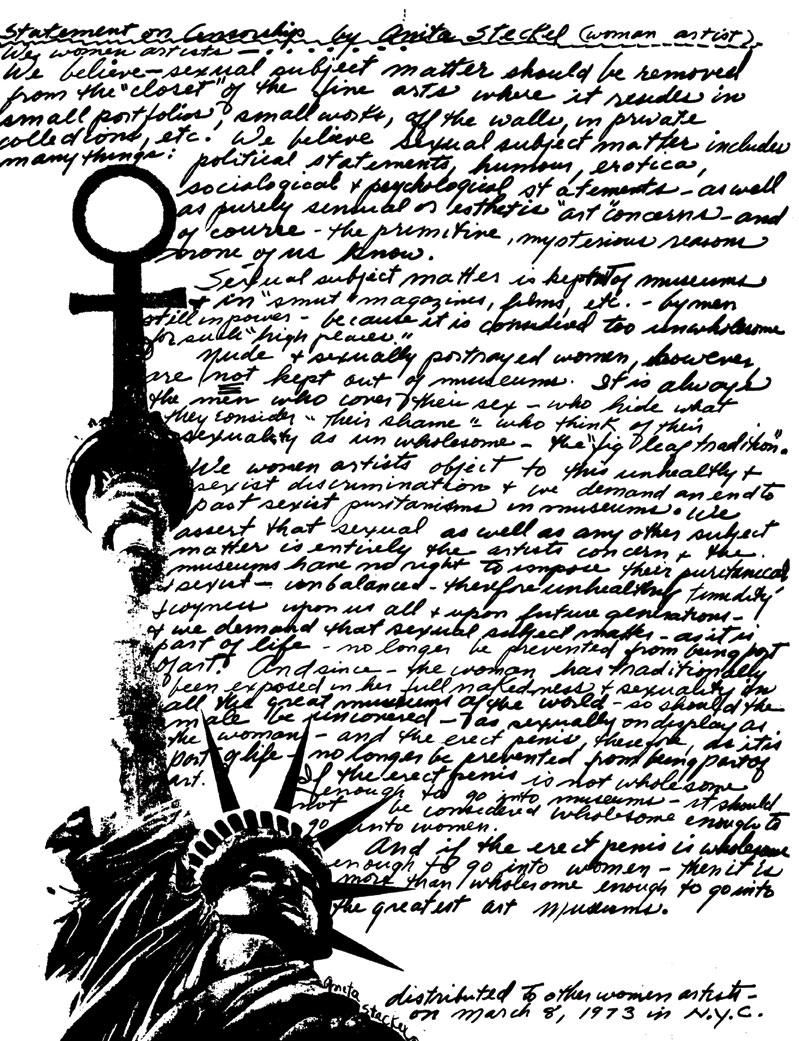 Statement on Censorship by Anita Steckel (woman artist)
We, women artists —
We believe — sexual subject matter should be removed
from the "closet" of the fine arts where it resides in
small portfolios, small works, off the walls, in private
collections, etc. We believe sexual subject matter includes
many things: political statements, humour, erotica,
sociological & psychological statements — as well
as purely sensual or esthetic "art" concerns — and
of course — the primitive, mysterious reasons
none of us know.
Sexual subject matter is kept out of museums
& in "smut" magazines, films, etc. — by men
still in power — because it is considered too unwholesome
for such "high places."
Nude & sexually portrayed women, however,
are not kept out of museums. It is always
the men who cover their sex — who hide what
they consider "their shame" — who think of their
sexuality as unwholesome — the "fig leaf tradition".
We women artists object to this unhealthy &
sexist discrimination & we demand an end to
past sexist puritanisms in museums. We
assert that sexual as well as any other subject
matter is entirely the artists concern & the
museums have no right to impose their puritanical
& sexist — unbalanced — therefore unhealthy timidity
& coyness upon us all & upon future generations —
& we demand that sexual subject matter — as it is
part of life — no longer be prevented from being part
of art! And since — the woman has traditionally
been exposed in her full nakedness & sexuality in
all the great museums of the world — so should the
male be uncovered — as sexually on display as
the woman — and the erect penis, therefore, as it is
part of life — no longer be prevented from being part of
art.
If the erect penis is not wholesome
enough to go into museums — it should
not be considered wholesome enough to
go into women.
And if the erect penis is wholesome
enough to go into women — then it is
more than wholesome enough to go into
the greatest art museums.
Anita
Steckel
distributed to other women artists —
on March 8, 1973 in N.Y.C.